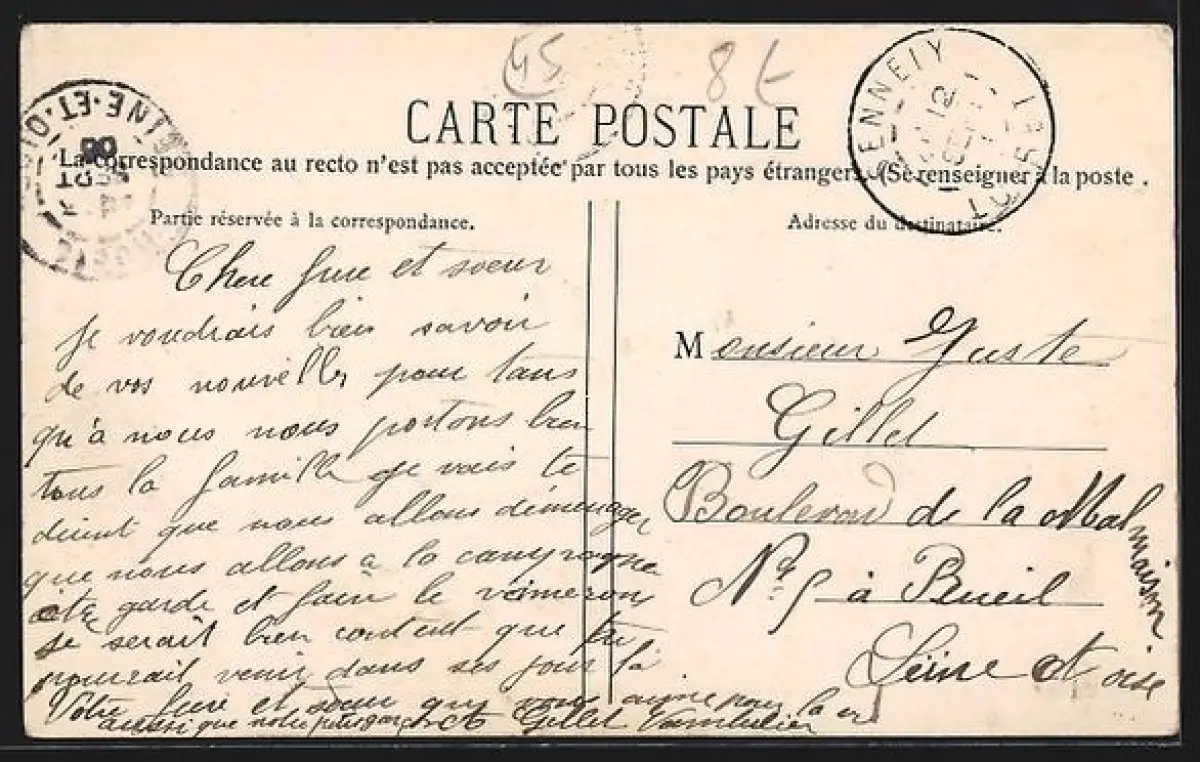 45
8t
CARTE POSTALE
La correspondance au recto n'est pas acceptée par tous les pays étrangers. (Se renseigner à la poste.
Partie réservée à la correspondance.
Adresse du destinataire.
Chere frere et soeur
je voudrais bien savoir
de vos nouvelles pour tans
qu'à nous nous portons bien
tous la famille je vais te
dirent que nous allons déménager
que nous allons à la campagne
garde et faire le
je serait bien content que tu
pourrait venir dans ses jour là
Votre frere et soeur qui vous aime pour la
aussi que notre Gillet
Monsieur Juste
Gillet
Boulevard de la Malmaison
No 5 à Rueil
Seine et oise
SENNELY
12
LOIRET
SEINE-ET-OISE
08